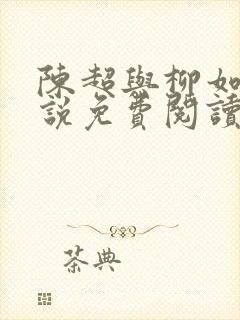 陳超與柳如
說免費閱讀
茶典